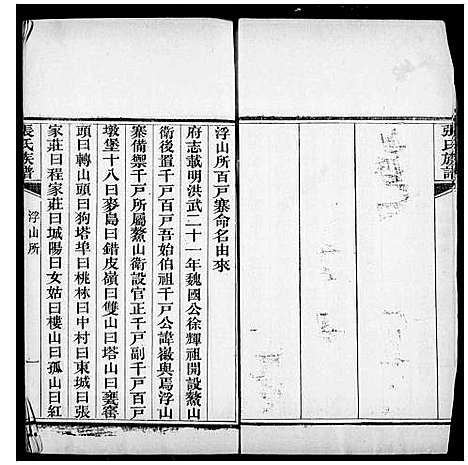 張氏族譜
浮山所百戶寨命名由來
府志載明洪武二十一年魏國公徐輝祖開設鰲山
衛後置千戶百戶吾始伯祖千戶公諱徽與焉浮山
寨備禦千戶所屬鰲山衛設官正千戶副千戶百戶
墩堡十八曰麥島曰錯皮嶺曰雙山曰塔山曰甕窰
頭曰轉山頭曰狗塔埠曰桃林曰中村曰東城曰張
家莊曰程家莊曰城陽曰女姑曰樓山曰孤山曰紅
張氏族譜
浮山所
一